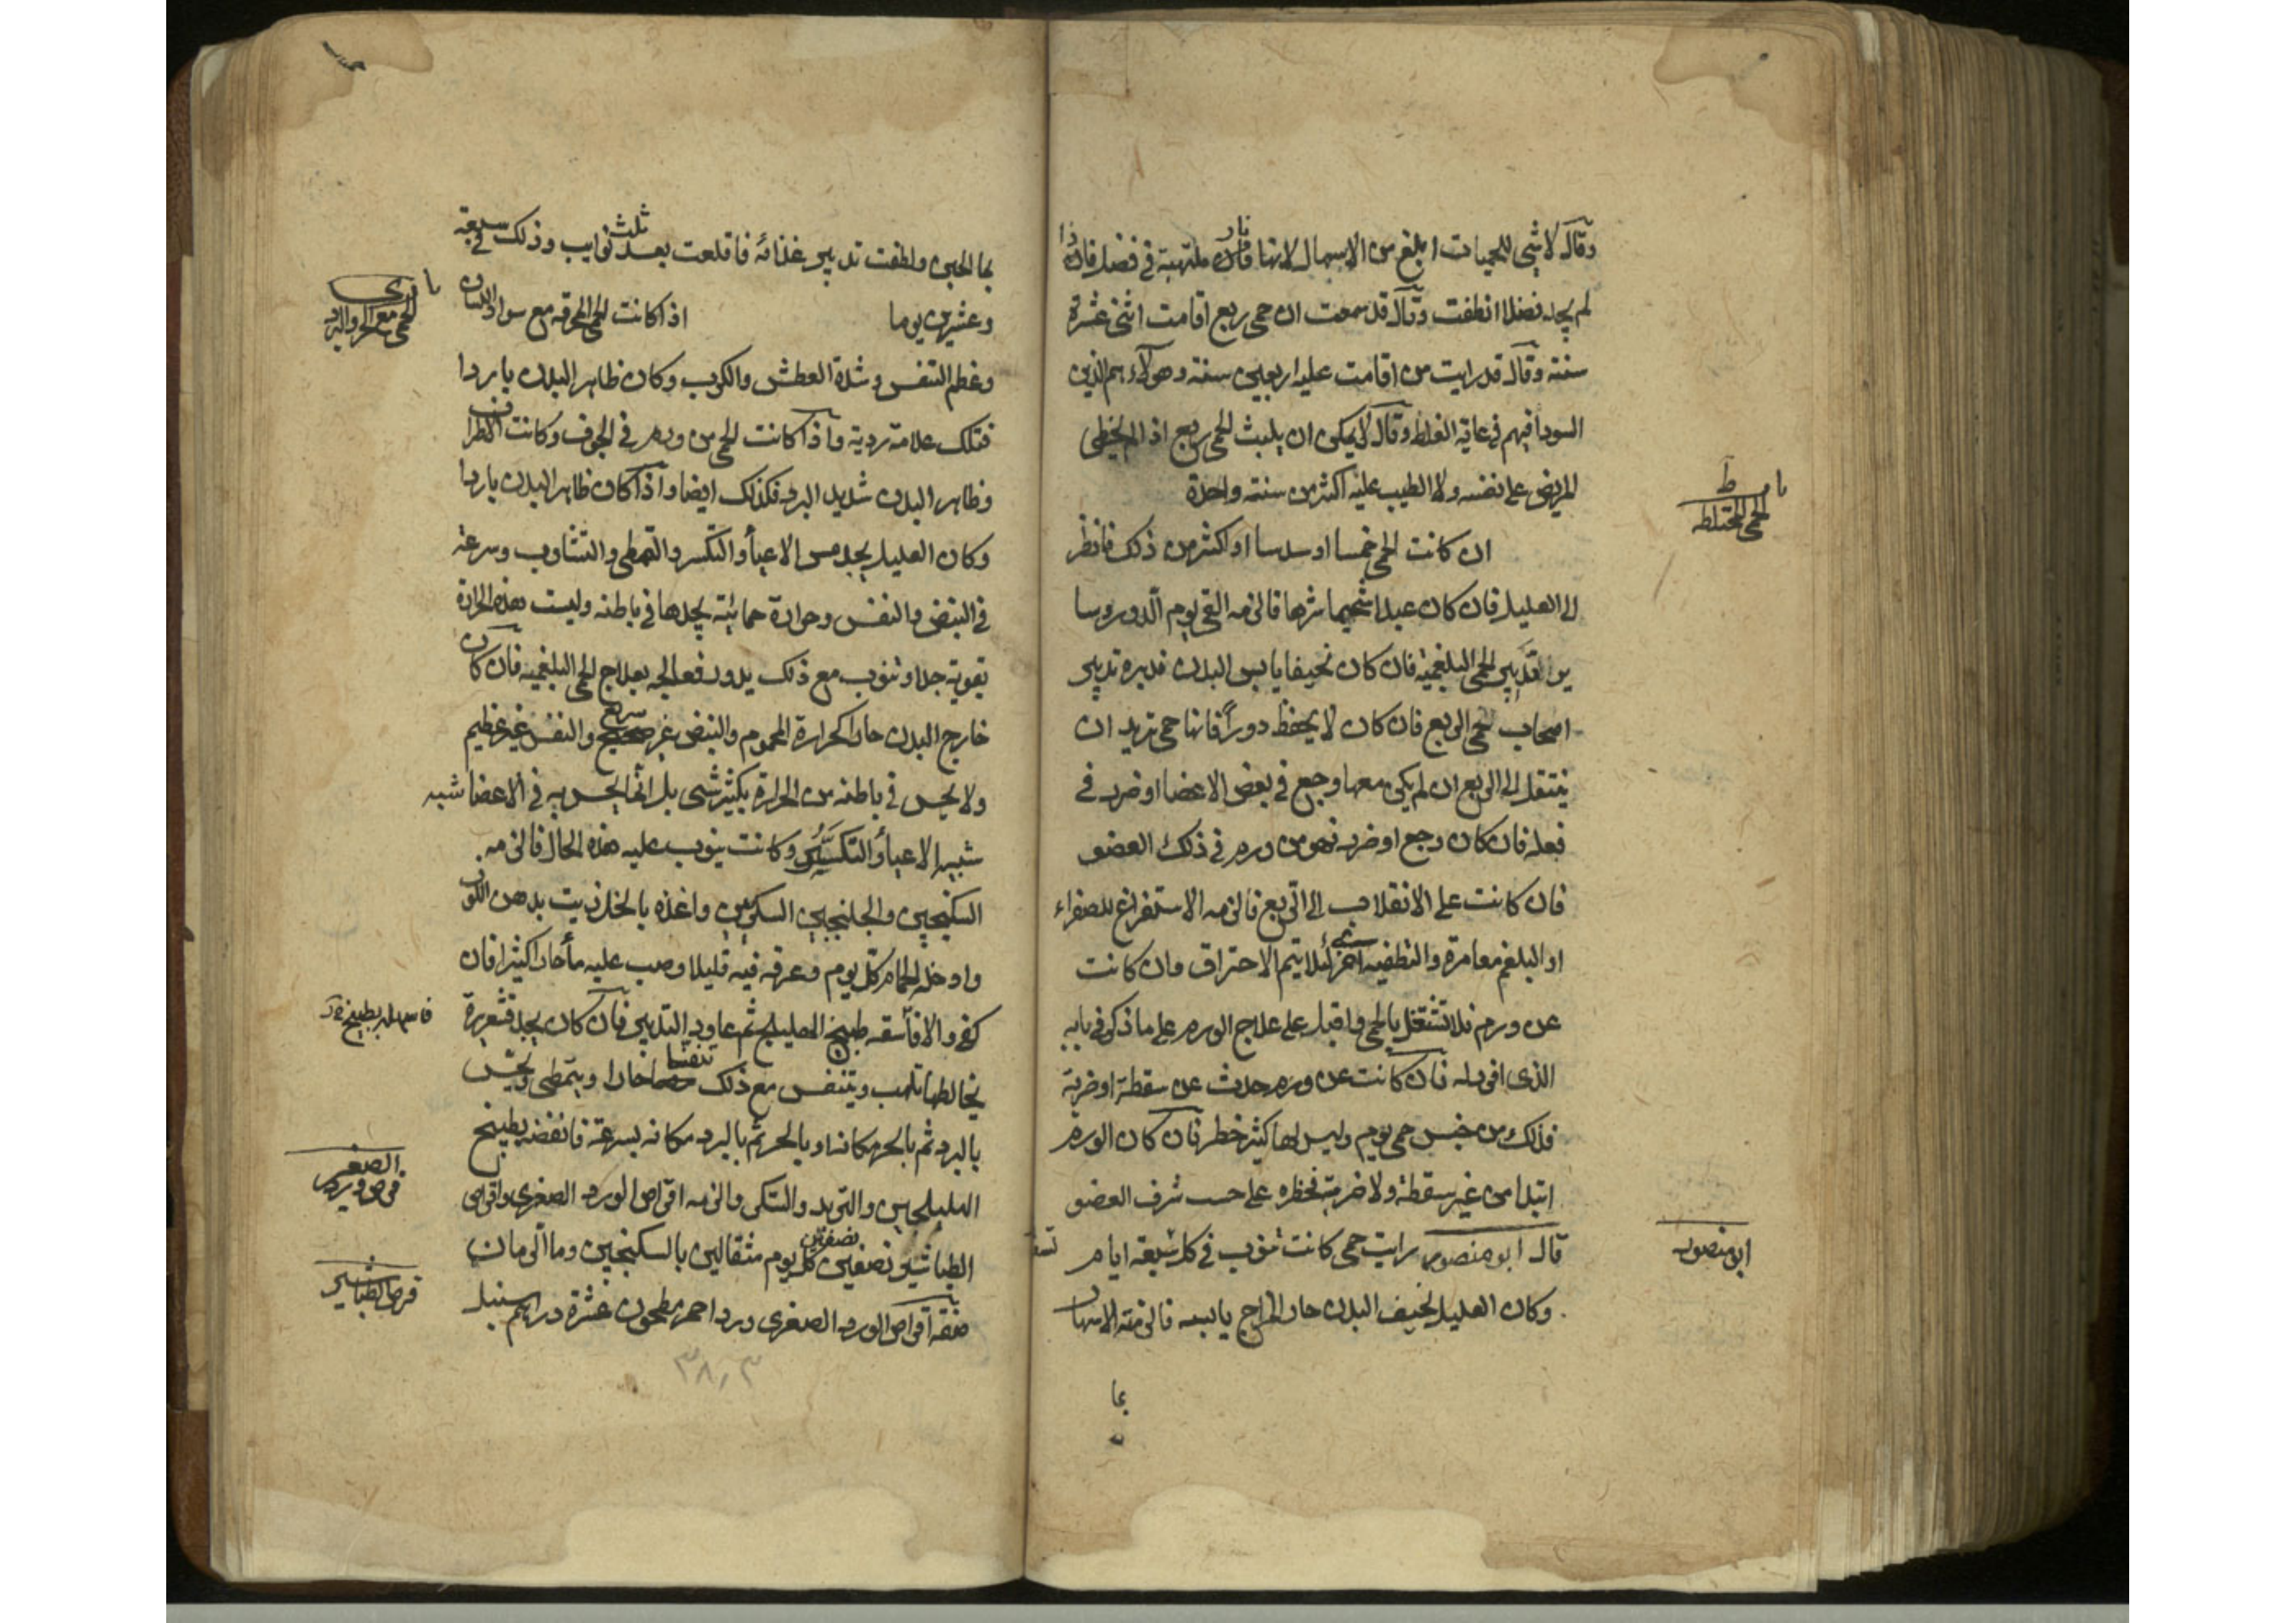 وقال لا شى للحميات ابلغ من الاسهال لانها نار ملتهبة فى فضل فاذا
لم يجد فضلا انطفت وقال قد سمعت ان حمى ربع اقامت اثنى عشرة
سنة وقال قد رايت من اقامت عليه اربعين سنة وهولاء هم الذين
السودا فيهم فى غاية الغلظ وقال لا يمكن ان يلبث الحمى ربع اذا لم يخطى
المريض على نفسه ولا الطبيب عليه اكثر من سنة واحدة
با ط
الحمى المختلطه
ان كانت الحمى خمسا او سدسا او اكثر من ذلك فانظر
الى العليل فان كان عبلا شحيما شرها فالزمه القى يوم الدور وسا
ير تدبير الحمى البلغمية فان كان نحيفا يابس البدن فدبره تدبير
اصحاب حمى الربع فان كان لا يحفظ دورا فانها حمى تريد ان
ينتقل الى الربع ان لم يكن معها وجع فى بعض الاعضا او ضرر فى
فعله فان كان وجع او ضرر فهو من ورم فى ذلك العضو
فان كانت على الانقلاب الى الربع فالزمه الاستفراغ للصفراء
او البلغم معا مرة والتطفيه لئلا يتم الاحتراق وان كانت
عن ورم فلا تشتغل بالحمى واقبل على علاج الورم على ما ذكر فى بابه
الذى افرد له فان كانت عن ورم حدث عن سقطة او ضربة
فذلك من جنس حمى يوم وليس لها كثير خطر فان كان الورم
ابتدا من غير سقطة ولا ضربة فخطره على حسب شرف العضو
ابو منصور
قال ابو منصور رايت حمى كانت تنوب فى كل سبعة ايام
وكان العليل نحيف البدن حار المزاج يابسه فالزمته الاسهال
بما
بما الجبن ولطفت تدبير غذائه فاقلعت بعد ثلث نوايب وذلك فى سبعة
وعشرين يوما اذا كانت الحمى المحرقه مع سواد اللسان
با
الحمى مع الحر والبرد
وعظم التنفس وشدة العطش والكرب وكان ظاهر البدن باردا
فتلك علامة ردية واذا كانت الحمى من ورم فى الجوف وكانت الاطراف
وظاهر البدن شديد البرد فكذلك ايضا واذا كان ظاهر البدن باردا
وكان العليل يجد مس الاعيا والتكسر والتمطى والتثاوب وسرعة
فى النبض والنفس وحرارة حمائية يجدها فى باطنه وليست هذه الحرارة
بقوية جدا وتنوب مع ذلك بدور فعالجه بعلاج الحمى البلغمية فان كان
خارج البدن حارا كحرارة المحموم والنبض غير سريع والنفس غير عظيم
ولا يحس فى باطنه من الحرارة بكثير شى بل انما يحس به فى الاعضا شبه
شبيه الاعيا والتكسر وكانت ينوب عليه هذه الحال فالزمه
السكنجبين والجلنجبين السكرين واغذه بالخل زيت بدهن اللوز
وادخله الحمام كل يوم وعرقه فيه قليلا وصب عليه ما حارا كثيرا فان
كفى والا فاسقه طبيخ الهليلج ثم عاود التدبير فان كان يجد قشعريرة
يخالطها تلهب ويتنفس مع ذلك تنفسا حارا ويتمطى ويحس
بالبرد ثم بالحر مكانه او بالحر ثم بالبرد مكانه بسرعة فانفضه بطبيخ
الهليلجين والتربد والستكى والزمه اقراص الورد الصغرى واقراص
قرص ورد
الصغير
الطباشير نصفين كل يوم مثقالين بالسكنجبين وما الرمان
قرص الطباشير
صفة اقراص الورد الصغرى ورد احمر مطحون عشرة دراهم سنبل
٣٨٫٣